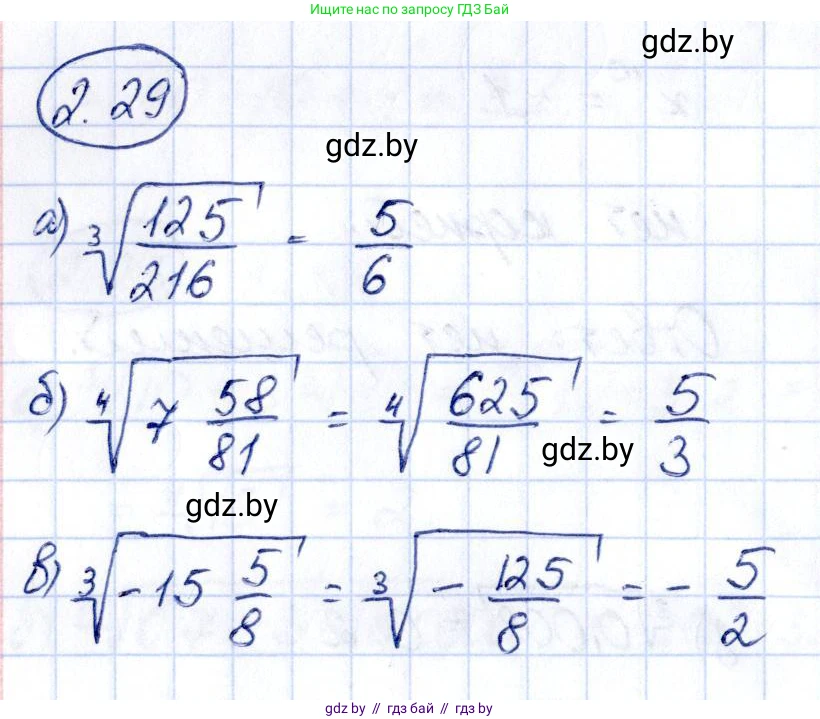 Ищите нас по запросу ГДЗ Бай
gdz.by
2.29
gdz.by
а) ∛(125/216) = 5/6
б) ∜(7 58/81) = ∜(625/81) = 5/3
gdz.by
gdz.by
в) ∛(-15 5/8) = ∛(-125/8) = -5/2
gdz by // гдз бай // gdz by